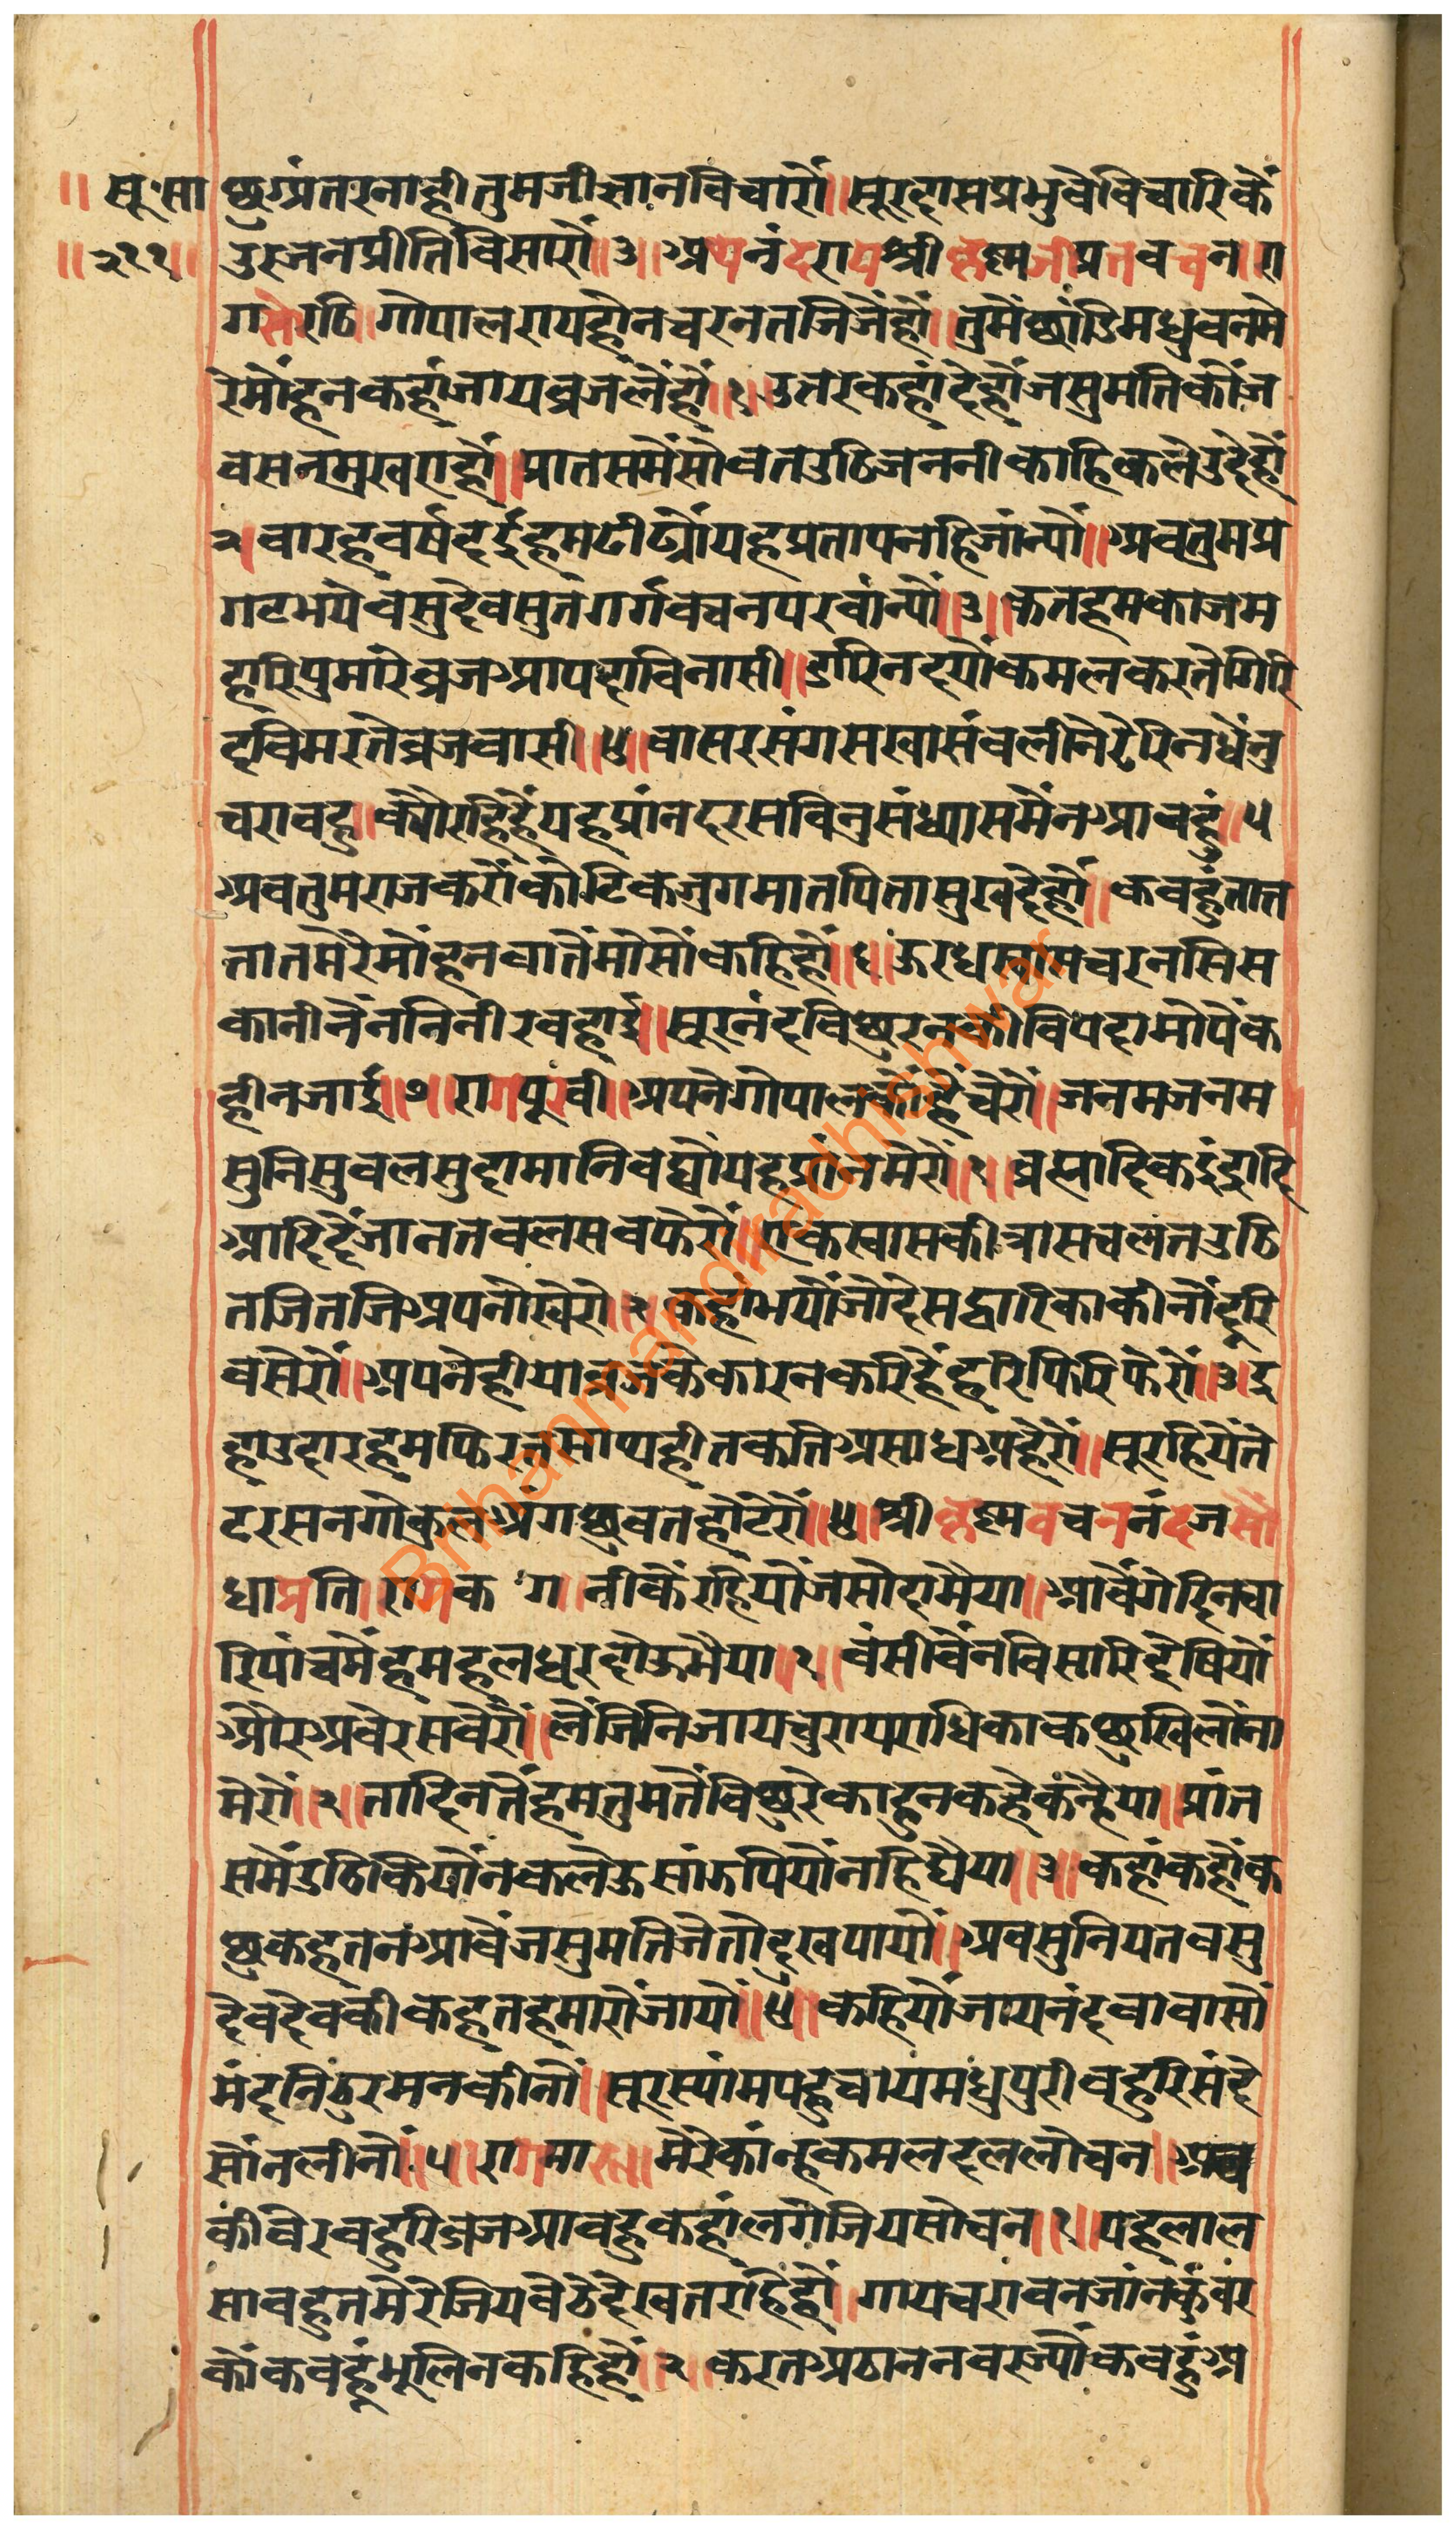 ॥ सू॰सा
॥२११॥
छअंतरनाहीतुमजीग्यानविचारौं॥सूरदासप्रभुवेविचारिकें
उरजनप्रीतिविसारौं॥३॥अथनंदरायश्रीकृष्णजीप्रतवचन॥रा
गसोरठि॥गोपालरायहौंनचरनतजिजैंहौं॥तुमैंछांडिमधुवनमे
रेमोंहनकहांजायव्रजलैंहौं॥१॥उतरकहांदेहौंजसुमतिकौंज
वसनमुखराहौं॥प्रातसमैंसोवतउठिजननीकाहिकलेउदेहौं
२॥वारहवर्षहईहमढीठौयहप्रतापनहिजांन्यौं॥अवतुमप्र
गटभयेवसुदेवसुतगर्गवचनपरवांन्यौं॥३॥कतहमकाजम
हारिपुमारेव्रजआपदाविनासी॥डारिनदयौंकमलकरतेगिरि
दविमरतेव्रजवासी॥४॥वासरसंगसखासंवलीनेटेरिनधेंनु
चरावहु॥क्यौरहिहैंयहप्रांनदरसविनुसंध्यासमैंनआवहुं॥५
अवतुमराजकरौंकोटिकजुगमातपितासुखदेहौं॥कवहुंतात
तातमेरेमोंहनवातैंमोसौंकहिहौं॥६॥ऊरधस्वासचरनसिस
कानीनैंननिनीरवहाई॥सूरनंदविछुरनकीविपदामोपैंक
हीनजाई॥७॥रागपूरवी॥अपनेगोपालकौंहैंचेरौं॥जनमजनम
सुनिसुवलसुदामानिवह्यौयहप्रांनमेरौं॥१॥व्रह्मादिकइंद्रादि
आदिदैंजानतवलसवफेरौं॥एकस्वासकीत्रासचलतउठि
तजितजिअपनौखेरौ॥२॥कहांभयौंजौदेसद्वारिकाकीनौंदूरि
वसेरौं॥अपनेहीयाव्रजकेकारनकरिहैंहरिफिरिफेरौं॥३॥इ
हाउहारहमफिरतसाथहीतकतिअसाधअहैरौं॥सूरहियैंते
टरसनगोकुलअंगछुवतहौंटेरौं॥४॥श्रीकृष्णवचननंदजसौ
धाप्रति॥रागक॰ग॥नीकैंरहियोंजसोदामैया॥आवैंगेदिनचा
रिपांचमेंहमहलधरदोऊमैया॥१॥वंसीवैंनविसारिदेषियों
औरअवेरसवेरौं॥लैंजिनिजायचुरायराधिकाकछुखिलौंना
मेरौं॥२॥तादिनतैंहमतुमतैंविछुरेकाहुनकहेकंन्हैया॥प्रांत
समैंउठिकियौंनकलेऊसांऊपियौंनहिघैया॥३॥कहांकहौंक
छुकहतनंआवैंजसुमतिजेतोदुखपायौ॥अवसुनियतवसु
देवदेवकीकहतहमारौंजायौ॥४॥कहियौंजायनंदवावासौं
मंदनिठुरमनकीनौं॥सूरस्यांमपहुचायमधुपुरीवहुरिसंदे
सौंनलीनौ॥५॥रागमारू॥मेरेकांन्हकमलदललोचन॥अव
कीवेरवहुरिव्रजआवहुकहांलगेजियसोचन॥१॥यहलाल
सावहुतमेरेजियवैठेदेखतरहिहौं॥गायचरावनजांनकुंवर
कौंकवहूंभूलिनकहिहौं॥२॥करतअठाननवरज्यौंकवहुंअ